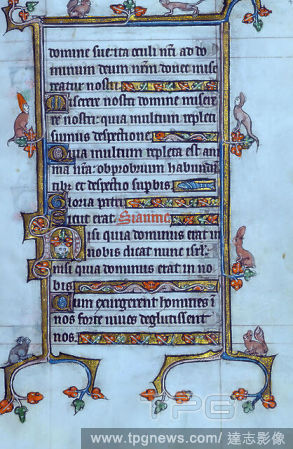 domine sue ita oculi nri ad do
minum deum nrm donec mise
reatur nostri
Miserere nostri domine misere
re nostri: quia multum repleti
sumus despectione
Quia multum repleta est ani
ma nra: obprobrium habundan
tibus et despectio supbis
Gloria patri
Sicut erat.
Nisi quia dominus erat in
nobis dicat nunc isrl:
nisi quia dominus erat in no
bis
Cum exurgerent homines in
nos forte vivos deglutissent
nos
TPG
www.tpgnews.com/ 達志影像